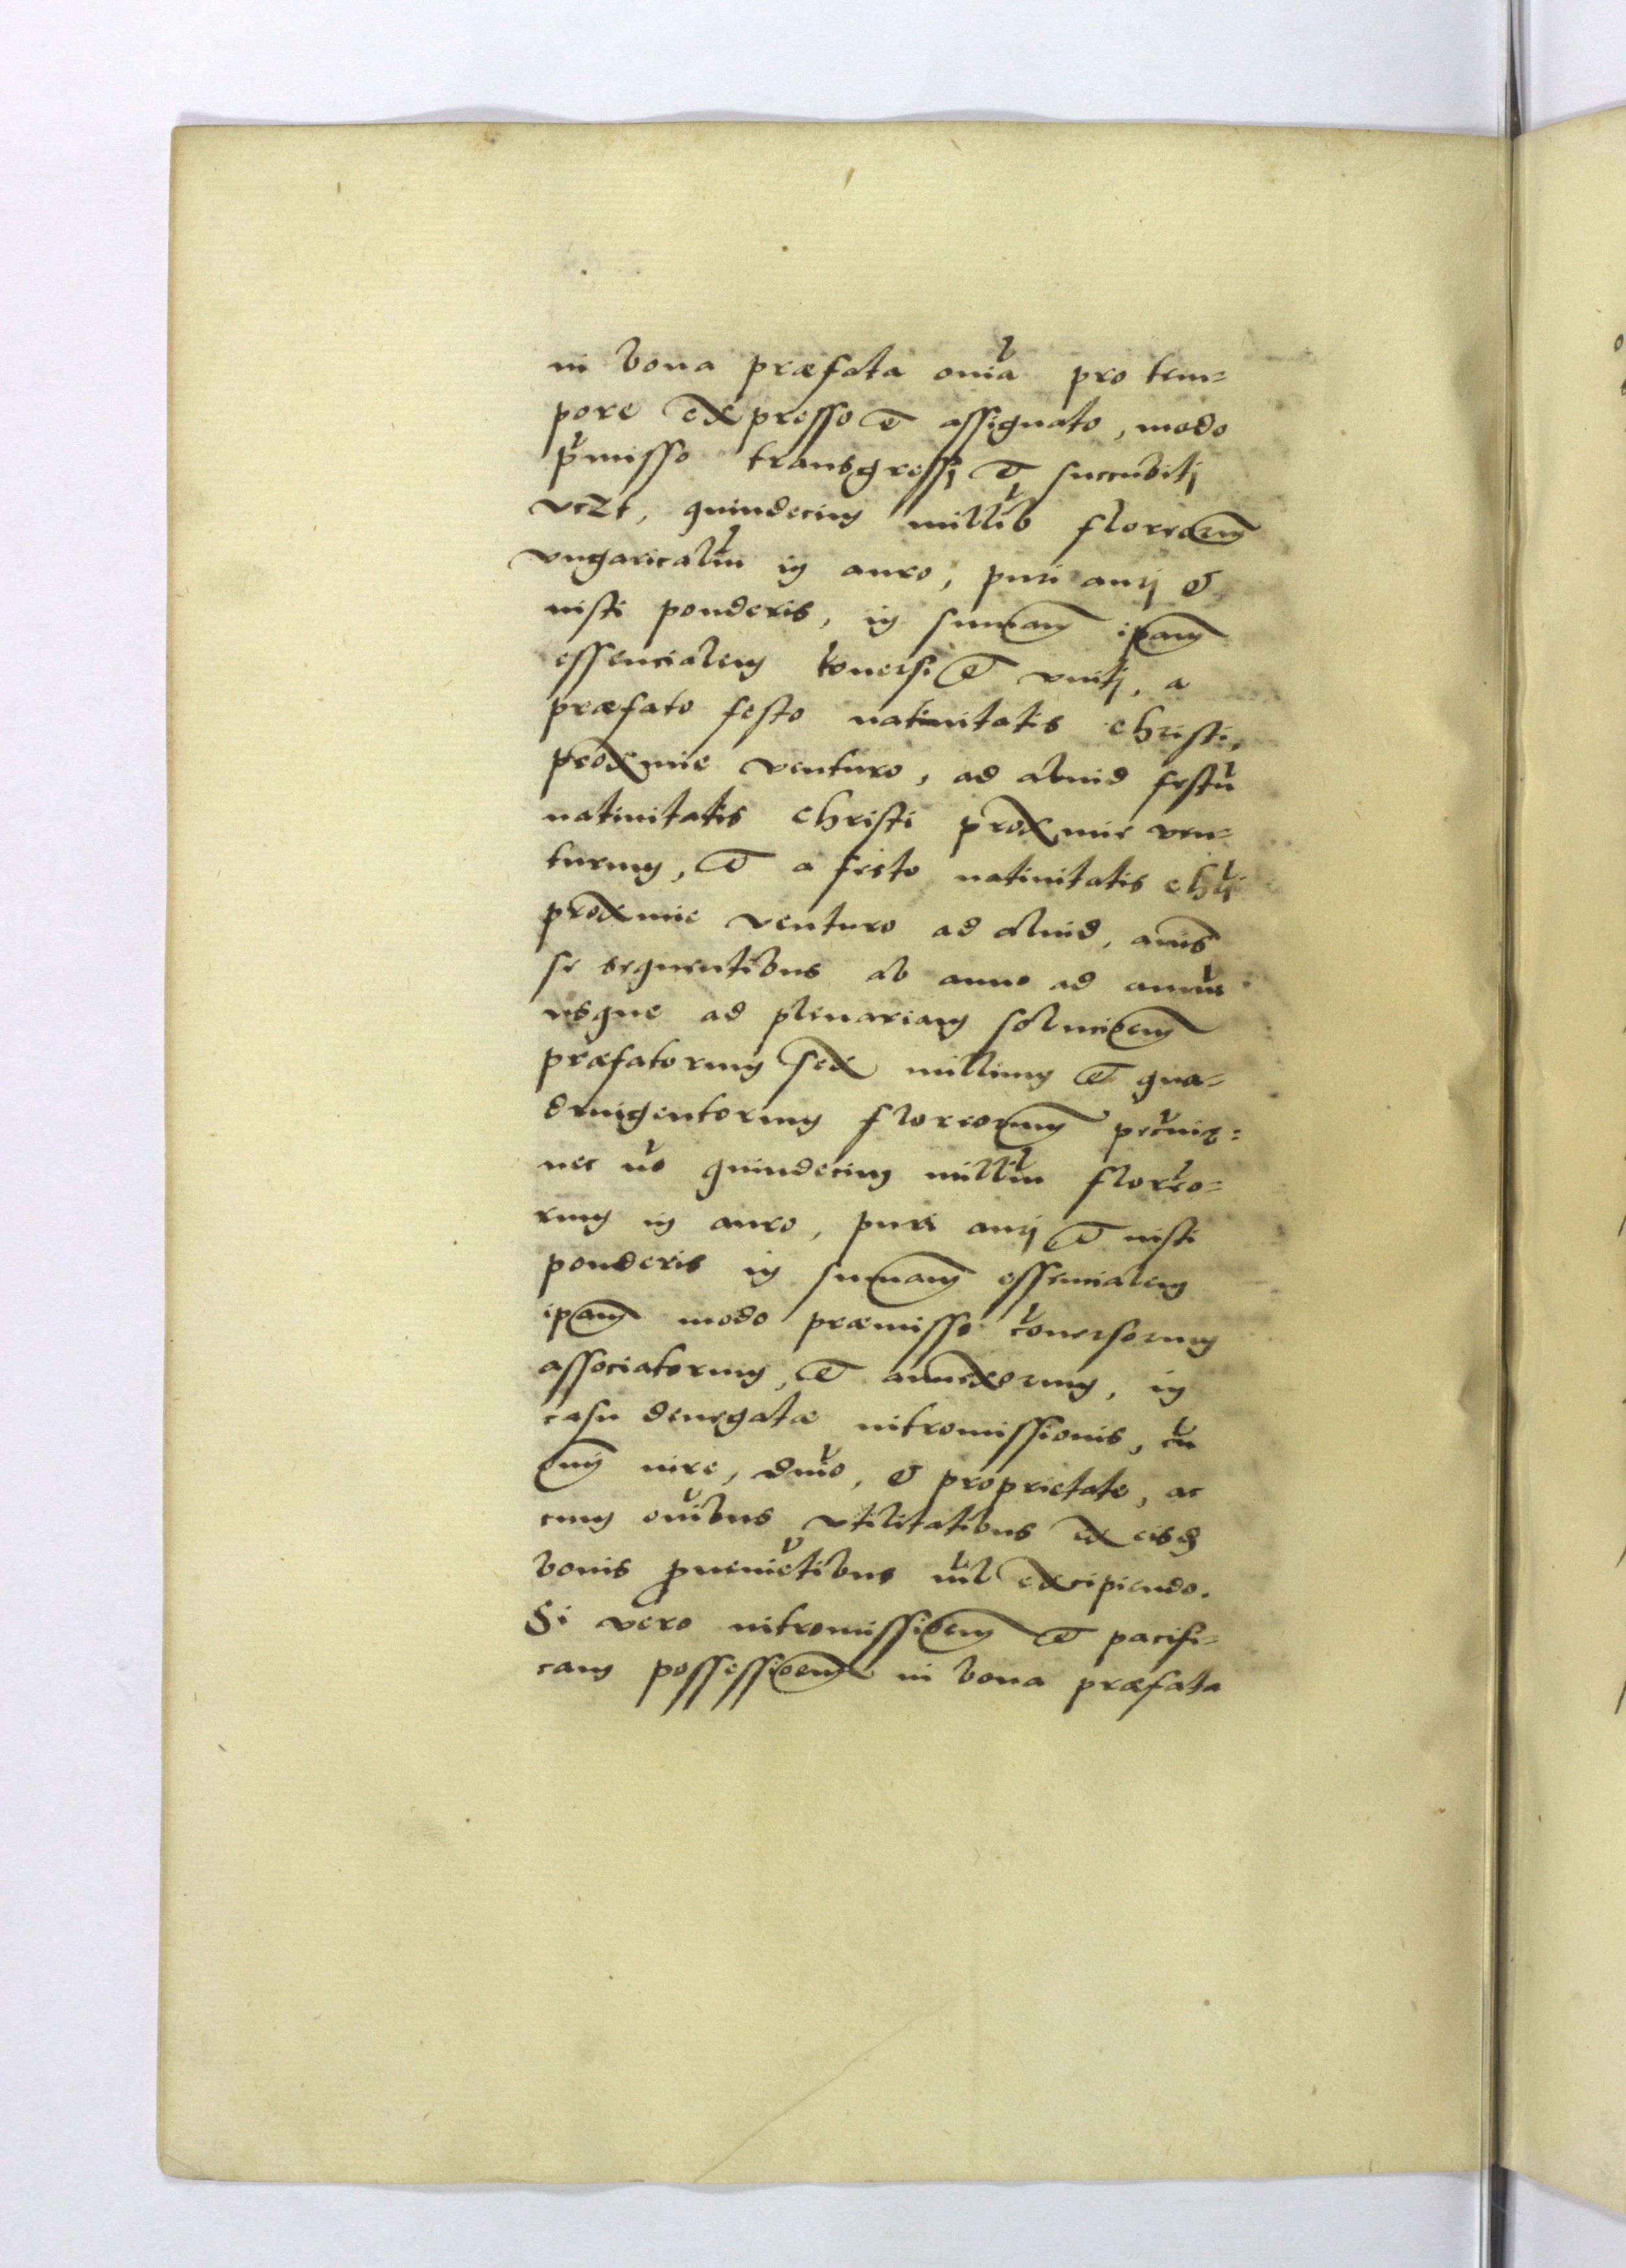 in bona præfata om̃ia pro tem=
pore expresso et assignato, modo
p̃misso transgressi et succubitj
vczt, quindecim millib flor̃eorum
vngaricaliũ in auro, puri aurj et
iusti ponderis, in summam ip̃am
essencialem conuersi et vnitj, a
præfato festo natiuitatis Christi,
proxime venturo, ad aliud festũ
natiuitatis Christi proxime ven=
turum, et a festo natiuitatis Chr̃i
proxime venturo ad aliud, annis
se sequentibus ab anno ad annũ
usque ad plenariam soluciõem
præfatorum sex millium et qua=
dringentorum floreorum pecũię=
nec nõ quindecim milliũ floreo=
rum in auro, puri aurj et iusti
ponderis in summam essencialem
ip̃am modo præmisso cõuersorum
associatorum, et annexorum, in
casu denegatæ intromissionis, cũ
om̃j iure, dñio, et proprietate, ac
cum om̃ibus vtilitatibus ex eisdẽ
bonis ꝓueniẽtibus nil excipiendo.
Si vero intromissiõem et pacifi=
cam possessiõem in bona præfata